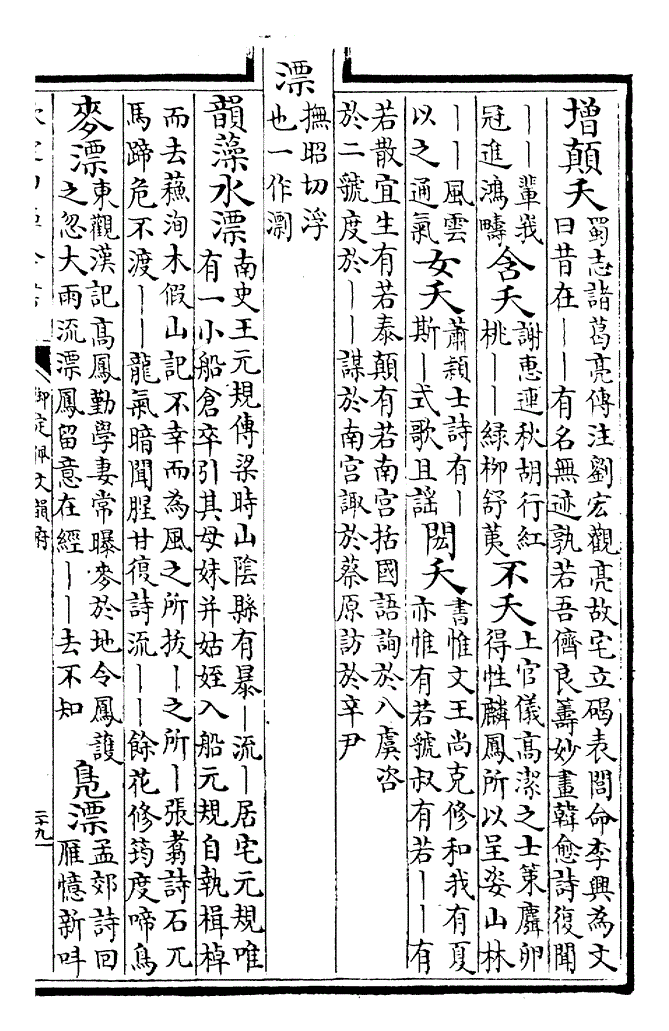 增顛夭
蜀志諸葛亮傳注劉宏觀亮故宅立碣表閭命李興為文
曰昔在丨丨有名無迹孰若吾儕良籌妙畫韓愈詩復聞
丨丨輩我
冠進鴻疇
含夭
謝惠連秋胡行紅
桃丨丨綠柳舒荑
不夭
上官儀高潔之士策麛卵
得性麟鳳所以呈姿山林
丨丨風雲
以之通氣
女夭
蕭穎士詩有丨
斯丨式歌且謡
閎夭
書惟文王尚克修和我有夏
亦惟有若虢叔有若丨丨有
若散宜生有若泰顛有若南宮括國語詢於八虞咨
於二虢度於丨丨謀於南宮諏於蔡原訪於辛尹
漂
撫昭切浮
也一作
韻藻水漂
南史王元規傳梁時山陰縣有暴丨流丨居宅元規唯
有一小船倉卒引其母妹并姑姪入船元規自執楫棹
而去蘇洵木假山記不幸而為風之所拔丨之所丨張翥詩石兀
馬蹄危不渡丨丨龍氣暗聞腥甘復詩流丨丨餘花修筠度啼鳥
麥漂
東觀漢記高鳳勤學妻常曝麥於地令鳳護
之忽大雨流漂鳳留意在經丨丨去不知
鳧漂
孟郊詩回
雁憶新
御定佩文韻府